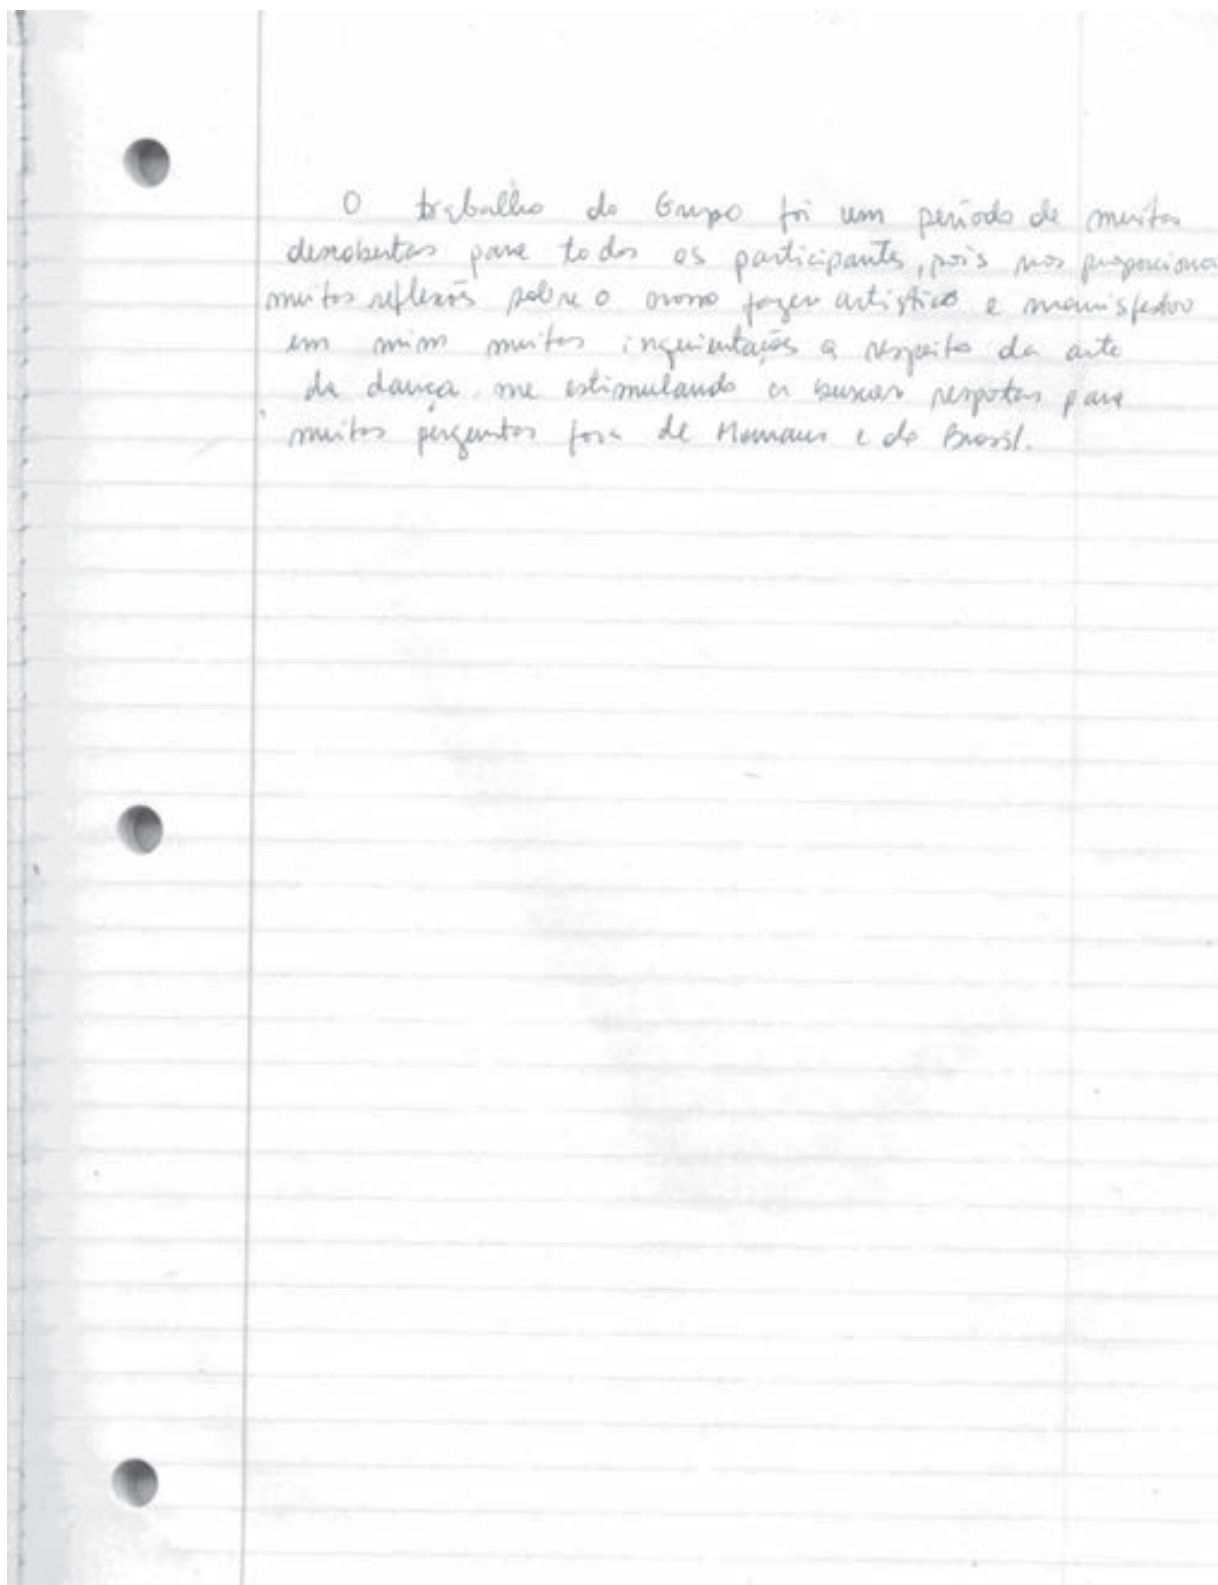 O trabalho do Grupo foi um período de muitas
descobertas para todos os participantes, pois nos proporciona
muitos reflexões sobre o nosso fazer artístico e manisfestou
em mim muitas inquientações a respeito da arte
da dança me estimulando a buscar respotas para
muitas perguntas fora de Manaus e do Brasil.